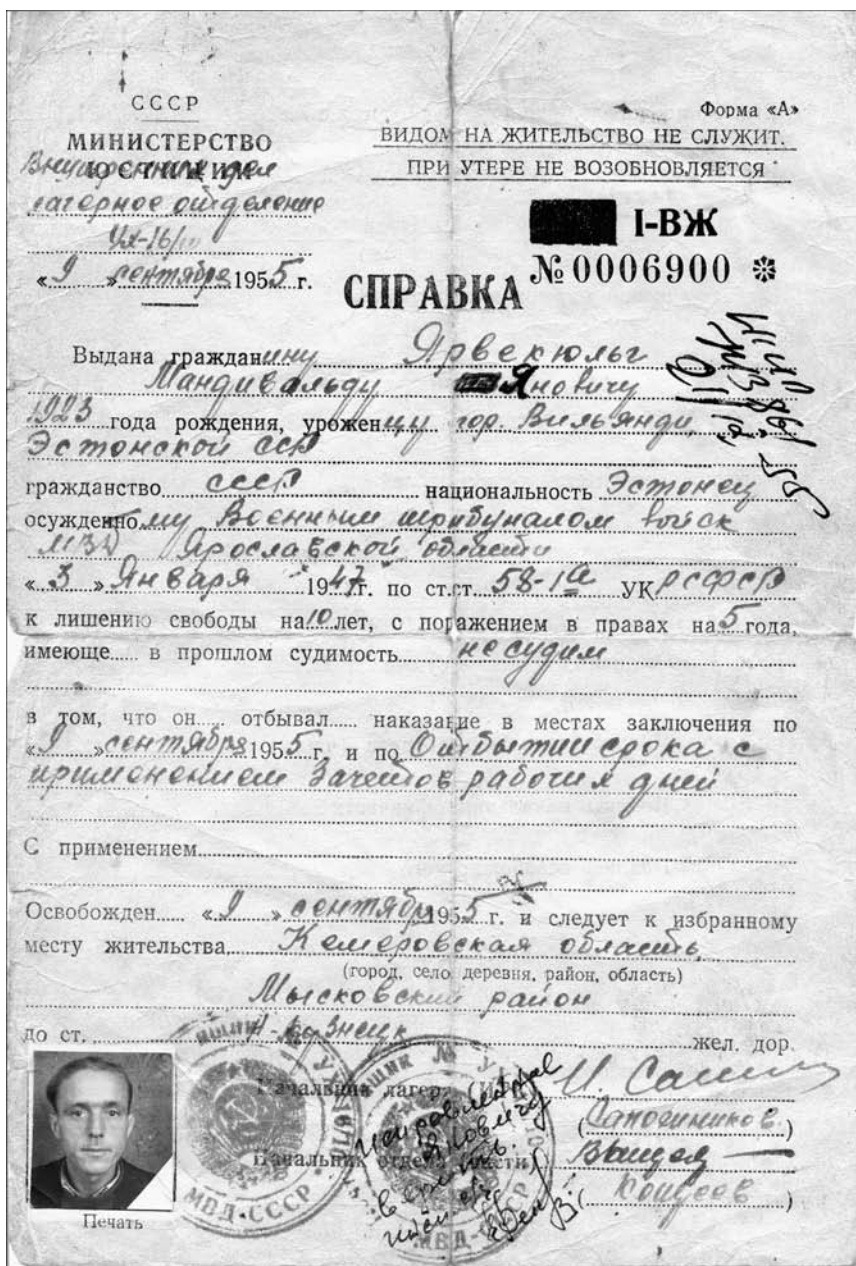 СССР
МИНИСТЕРСТВО
ЮСТИЦИИ
Внутренних дел
лагерное отделение
«9» сентября 1955 г.
Форма «А»
ВИДОМ НА ЖИТЕЛЬСТВО НЕ СЛУЖИТ.
ПРИ УТЕРЕ НЕ ВОЗОБНОВЛЯЕТСЯ
I-ВЖ
№ 0006900
СПРАВКА
Выдана гражданину Ярвекюльг
Мандивальду Яновичу
1923 года рождения, уроженцу гор. Вильянди,
Эстонской ССР
гражданство СССР национальность Эстонец
осужденному Военным трибуналом войск
МВД Ярославской области
«3» Января 1947 г. по ст.ст. 58-1а УК РСФСР
к лишению свободы на 10 лет, с поражением в правах на 5 года,
имеюще в прошлом судимость не судим
в том, что он отбывал наказание в местах заключения по
«9» сентября 1955 г. и по Отбытии срока с
применением зачетов рабочих дней
С применением
Освобожден «9» сентября 1955 г. и следует к избранному
месту жительства Кемеровская область
(город, село, деревня, район, область)
Мысковский район
до ст. Н-Кузнецк жел. дор.
Начальник лагеря
(Сапогиников)
Начальник отдела (части)
МВД-СССР
МВД-СССР
Печать